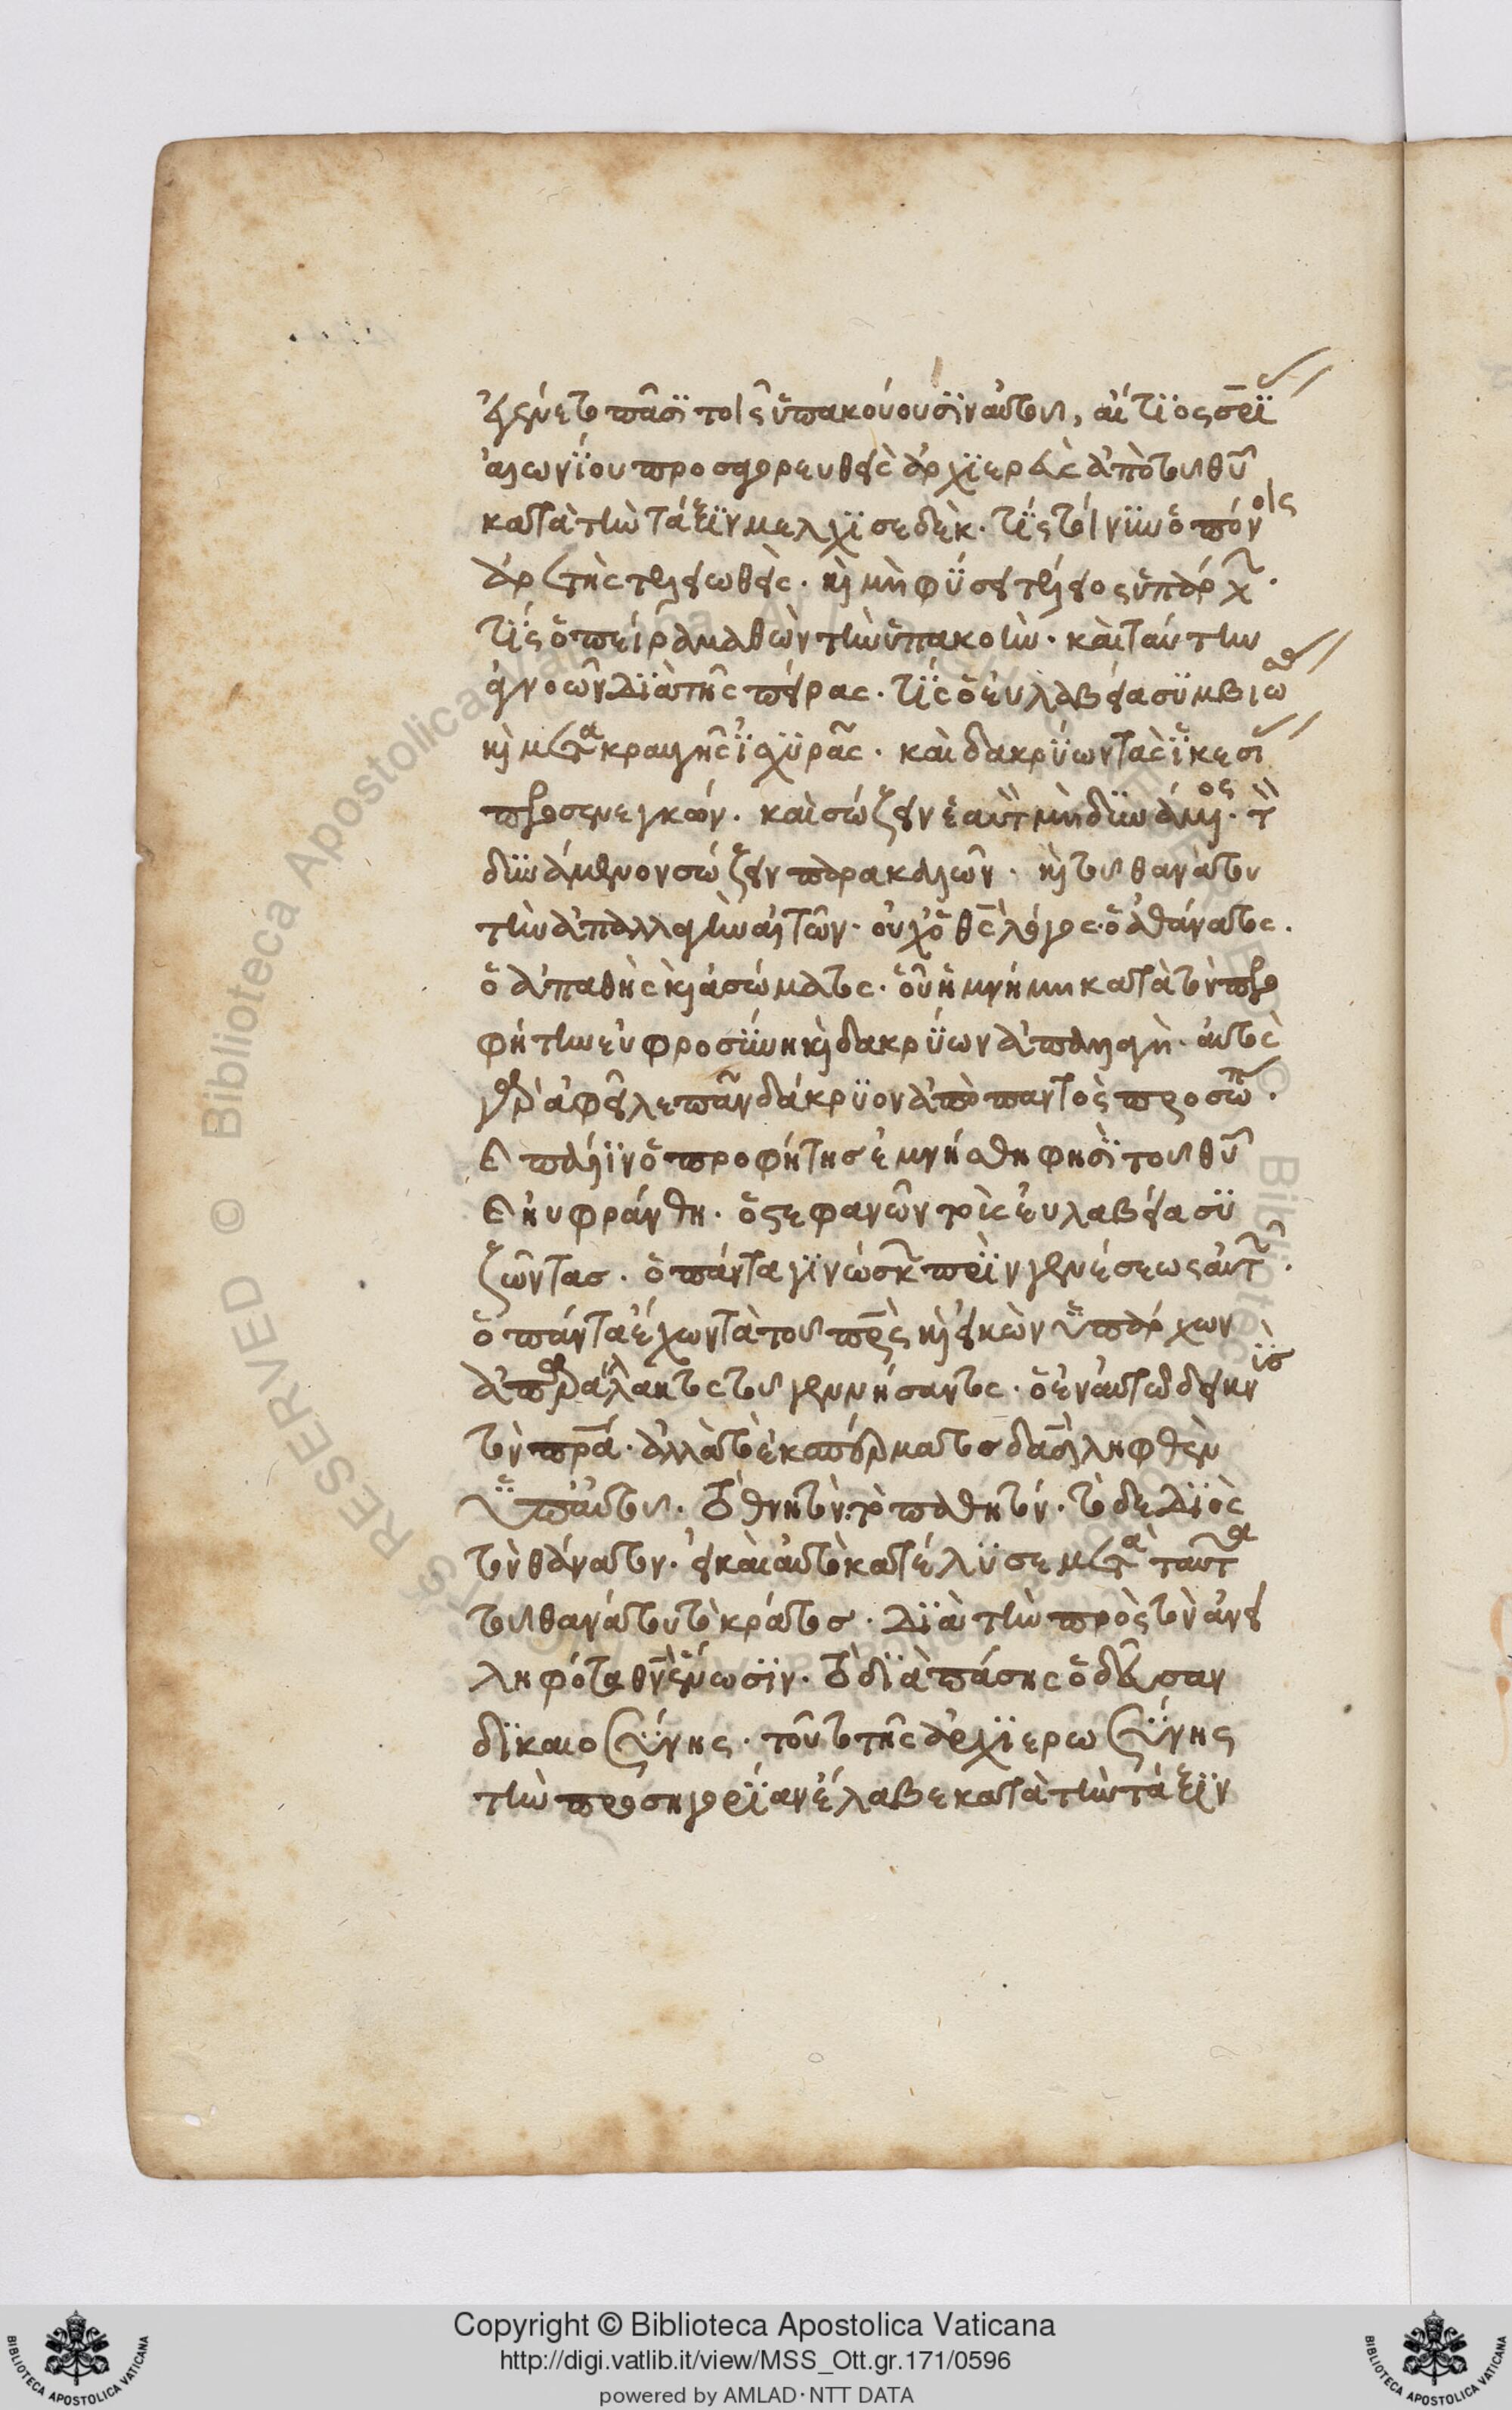 ἐγένετο πᾶσι τοῖς ὑπακούουσιν αὐτοῦ, αἴτιος σρι
αἰωνίου προσαγορευθεὶς ἀρχιερεὺς ἀπὸ τοῦ θυ
κατὰ τὴν τάξιν μελχισεδὲκ. τίς τοίνυν ὁ πόνοις
ἀρετῆς τελειωθεὶς. καὶ μὴ φύσει τέλειος ὑπάρχ
τίς ὁ πείρα μαθὼν τὴν ὑπακοὴν. καὶ ταύτην
ἀγνοῶν διὰ τῆς πείρας. τίς ὁ εὐλαβεία συμβιω
καὶ μετὰ κραυγῆς ἰσχυρᾶς. καὶ δακρύων τὰς ἱκεσι
προσενεγκών. καὶ σώζειν ἑαυτ μὴ δυνάμενος. τ
δυνάμενον σώζειν παρακαλῶν. καὶ τοῦ θανάτου
τὴν ἀπαλλαγὴν αἰτῶν. οὐχ ὁ θς λόγος. ὁ ἀθάνατος.
ὁ ἀπαθὴς καὶ ἀσώματος. οὗ ἡ μνήμη κατὰ τὸν προ
φήτην εὐφροσύνη καὶ δακρύων ἀπαλλαγὴ. αὐτὸς
γὰρ ἀφεῖλε πᾶν δάκρυον ἀπὸ παντὸς προσώπ.
καὶ πάλιν ὁ προφήτης ἐμνήσθη φησὶ τοῦ θυ
καὶ ηὐφράνθη. ὁ στεφανῶν τοὺς εὐλαβεία συ
ζῶντας. ὁ πάντα γινώσκ πρὶν γενέσεως αὐτ.
ὁ πάντα ἔχων τὰ τοῦ πρς καὶ εἰκὼν ὑπάρχων
ἀπαράλλακτος τοῦ γεννήσαντος. ὁ ἐν αὑτῷ δεικνὺς
τὸν πρα. ἀλλὰ τὸ ἐκ σπέρματος δαδ ληφθὲν
ὑπ᾽ αὐτοῦ. τὸ θνητὸν. τὸ παθητόν. τὸ δεδιὸς
τὸν θάνατον. εἰ καὶ αὐτὸ κατέλυσε μετὰ ταῦτα
τοῦ θανάτου τὸ κράτος. διὰ τὴν πρὸς τὸν ἀνει
ληφότα θν ἕνωσιν. τὸ διὰ πάσης ὁδεῦσαν
δικαιοσύνης. τοῦτο τῆς ἀρχιερωσύνης
τὴν προσηγορίαν ἔλαβε κατὰ τὴν τάξιν
Copyright © Biblioteca Apostolica Vaticana
http://digi.vatlib.it/view/MSS_Ott.gr.171/0596
powered by AMLAD·NTT DATA